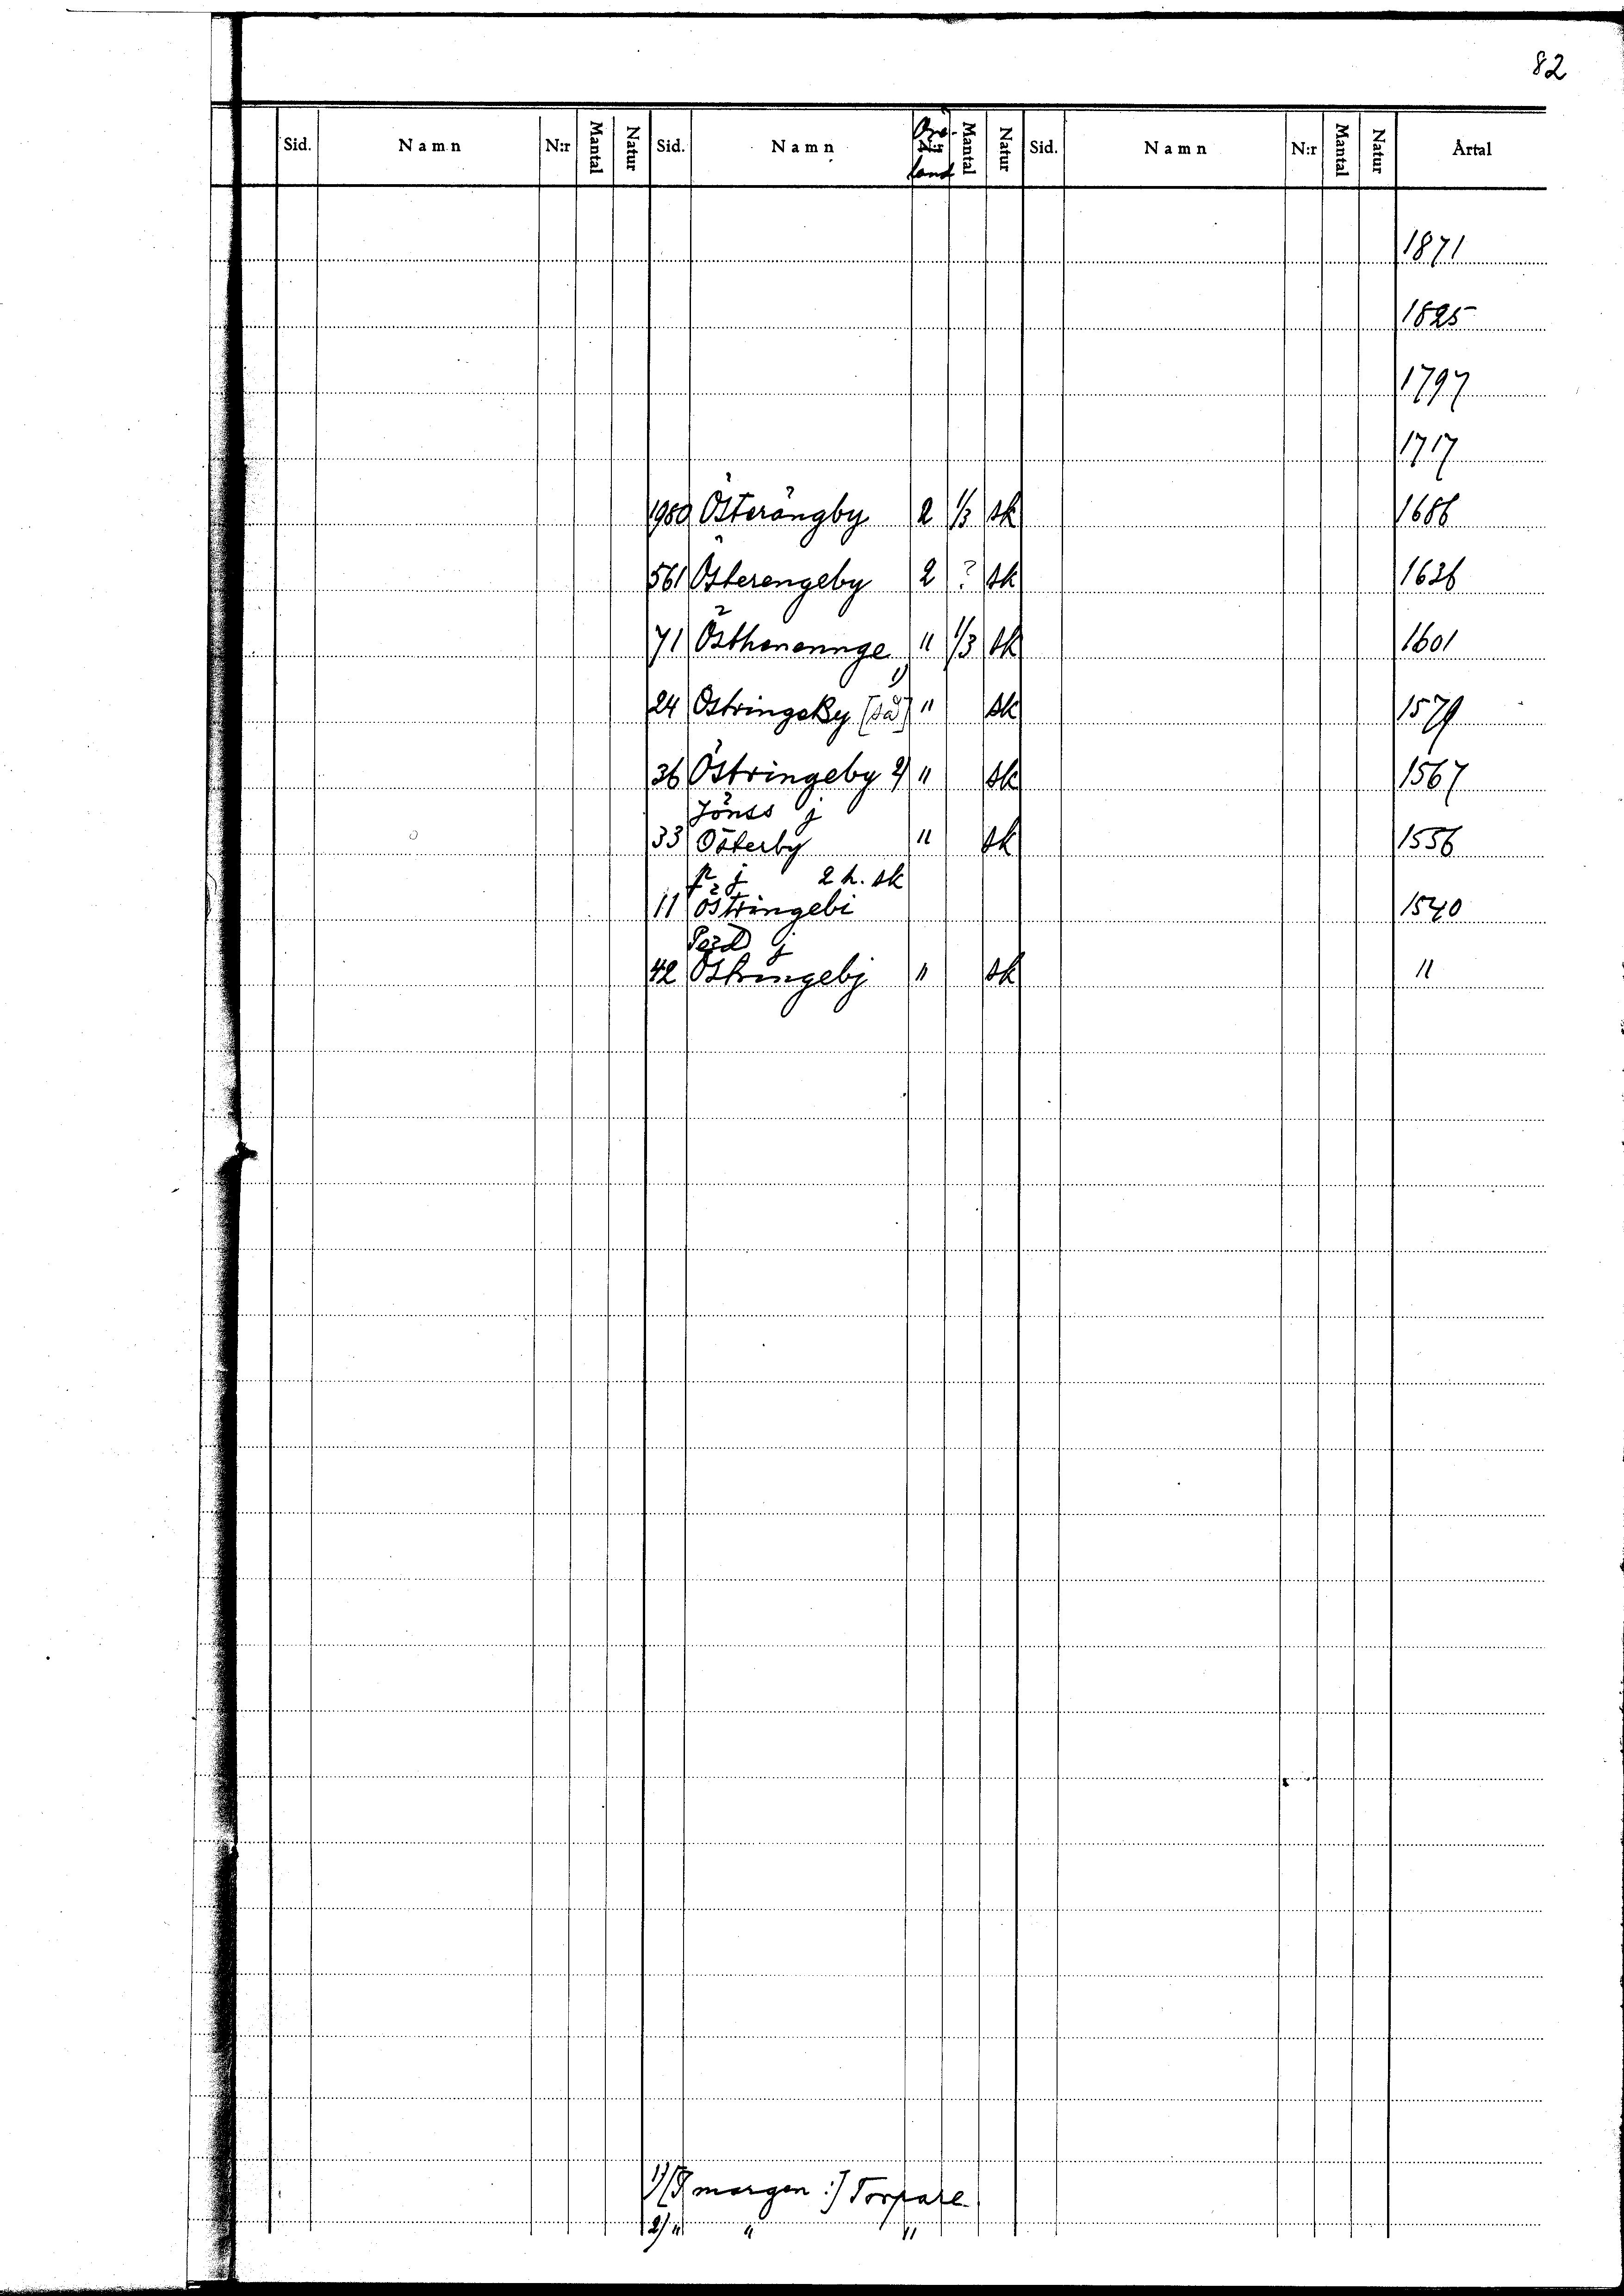 82
Sid. Namn N:r Mantal Natur Sid. Namn Öre- N:r land Mantal Natur Sid. Namn N:r Mantal Natur Årtal
1871
1825
1797
1717
1980 Österängby 2 1/3 sk 1686
561 Österengeby 2 ? sk 1636
71 Österennge " 1/3 sk 1601
24 ÖstringeBy [så] 1) " sk 1579
36 Östringeby 2) " sk 1567
Jönss j
33 Österby " sk 1556
p j 2 h. sk
11 Östringebi 1540
Perd j
42 Östringebj " sk "
1) [I margen:] Torpare
2) " " "